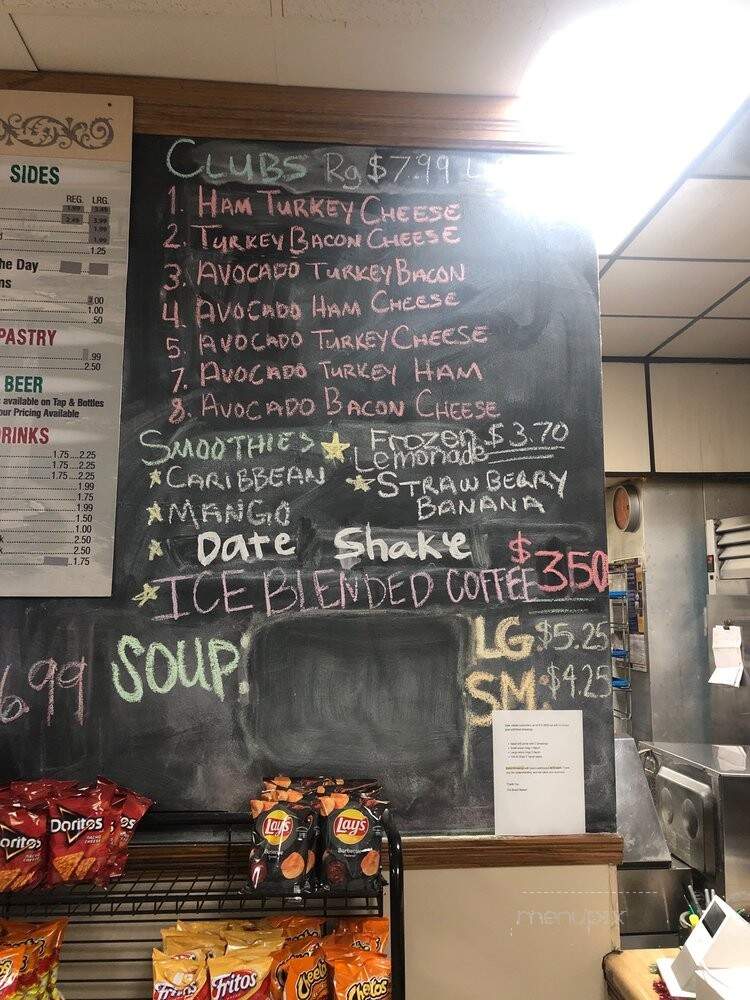 SIDES
REG. LRG.
2.49 3.99
1.99
1.99
1.25
he Day
ns
.00
1.00
.50
PASTRY
.99
2.50
BEER
available on Tap & Bottles
our Pricing Available
RINKS
1.75 2.25
1.75 2.25
1.75 2.25
1.99
1.75
1.99
1.50
1.00
2.50
2.50
1.75
CLUBS Rg $7.99 L
1. HAM TURKEY CHEESE
2. TURKEY BACON CHEESE
3. AVOCADO TURKEY BACON
4. AVOCADO HAM CHEESE
5. AVOCADO TURKEY CHEESE
7. AVOCADO TURKEY HAM
8. AVOCADO BACON CHEESE
SMOOTHIES Frozen Lemonade $3.70
CARIBBEAN STRAWBERRY
MANGO BANANA
Date Shake
ICE BLENDED COFFEE $350
SOUP: LG $5.25
6.99 SM. $4.25
Doritos
Lay's
Lay's
Fritos
Cheetos
menupix